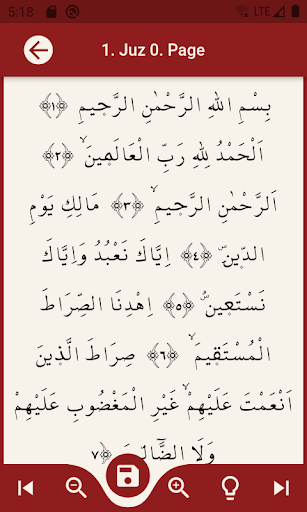 5:18 LTE
1. Juz 0. Page
بِسْمِ اللهِ الرَّحْمٰنِ الرَّحِيمِ ﴿١﴾
اَلْحَمْدُ لِلهِ رَبِّ الْعَالَمِينَۙ ﴿٢﴾
اَلرَّحْمٰنِ الرَّحِيمِۙ ﴿٣﴾ مَالِكِ يَوْمِ
الدِّينِۜ ﴿٤﴾ اِيَّاكَ نَعْبُدُ وَاِيَّاكَ
نَسْتَعِينُۜ ﴿٥﴾ اِهْدِنَا الصِّرَاطَ
الْمُسْتَقِيمَۙ ﴿٦﴾ صِرَاطَ الَّذِينَ
اَنْعَمْتَ عَلَيْهِمْۙ غَيْرِ الْمَغْضُوبِ عَلَيْهِمْ
وَلَا الضَّٓالِّينَ ﴿٧